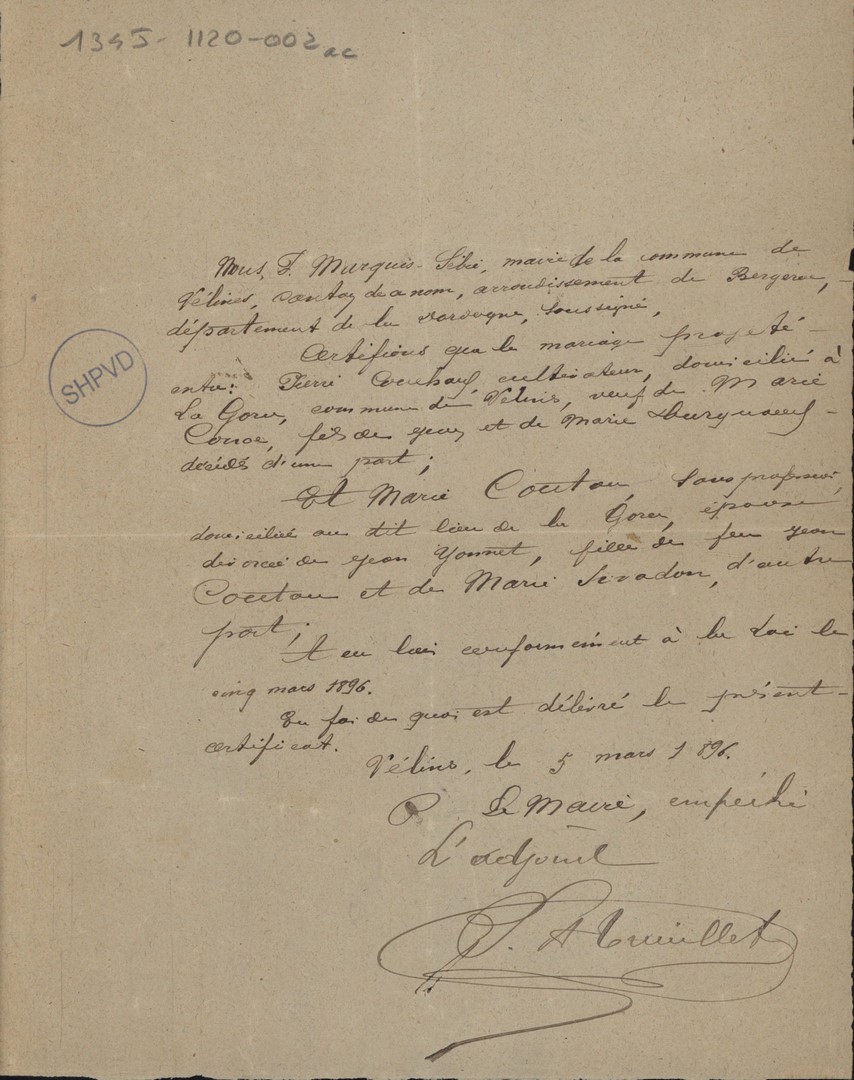 1345-1120-002 ac
Nous, F. Marquis-Sébie, maire de la commune de
Vélines, canton de ce nom, arrondissement de Bergerac,
département de la Dordogne, soussigné,
SHPVD
Certifions que le mariage projeté
entre: Pierre cultivateur, domicilié à
La Gorce, commune de Vélines, veuf de Marie
fils de Jean et de Marie
décédés d'une part;
Et Marie Coutou, sans profession,
domiciliée au dit lieu de la Gorce, épouse
divorcée de Jean Yonnet, fille de feu Jean
Coutou et de Marie Sivadon, d'autre
part;
A eu lieu conformément à la Loi le
cinq mars 1896.
En foi de quoi est délivré le présent
certificat.
Vélines, le 5 mars 1896.
P Le Maire, empêché
L'adjoint